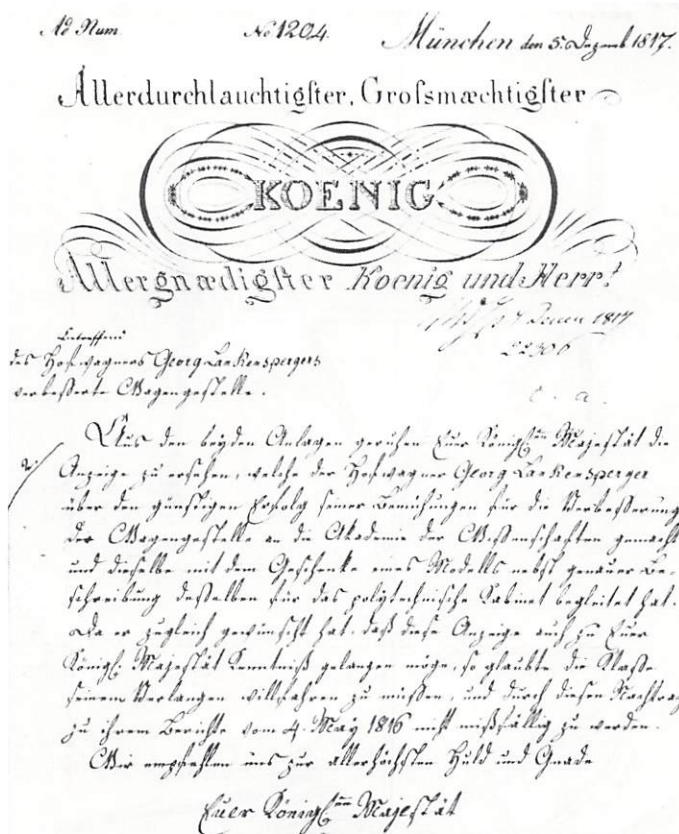 Ad Num. No 1204. München den 5. Dezemb 1817.
Allerdurchlauchtigster, Grossmæchtigster
KOENIG
Allergnædigster Koenig und Herr!
7 Decem 1817
22306
Betreffend
des Hofwagners Georg Lankenspergers
verbesserte Wagengestelle.
Aus den beyden Anlagen geruhen Euer Königl.en Majestät die
Anzeige zu ersehen, welche der Hofwagner Georg Lankensperger
über den günstigen Erfolg seiner Bemühungen für die Verbesserung
der Wagengestelle an die Akademie der Wissenschaften gemacht
und dieselbe mit dem Geschenke eines Modells nebst genauer Be-
schreibung desselben für das polytechnische Cabinet begleitet hat.
Da er zugleich gewünscht hat, daß diese Anzeige auch zu Euer
Königl. Majestät Kenntniß gelangen möge, so glaubte die Klasse
seinem Verlangen willfahren zu müssen, und durch diesen Nachtrag
zu ihrem Berichte vom 4. May 1816 nicht mißfällig zu werden.
Wir empfehlen uns zur allerhöchsten Huld und Gnade
Euer Königl.en Majestät